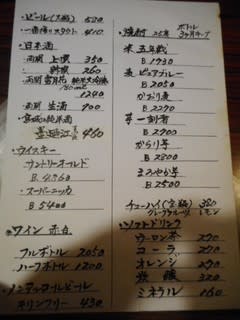 ・ビール(大瓶) 620
一番搾りスタウト 410
・日本酒
両関 上撰 350
両関 雪月花 純米大吟醸
1240
両関 生酒 900
・宮城の純米酒
墨廼江 460
・ウイスキー
サントリーオールド
B 4960
・スーパーニッカ
B 5400
ワイン 赤白
フルボトル 2050
ハーフボトル 1200
ノンアルコールビール
キリンフリー 430
・焼酎 25度 ボトル 3ヶ月キープ
米 五年戦
B 1930
麦 ピュアブルー
B 2050
かおり麦
B 2290
芋 一刻者
B 2900
からり芋
B 2800
まろやか芋
B 2500
チューハイ 380
グレープフルーツ レモン
・ソフトドリンク
ウーロン茶 270
コーラ 270
オレンジ 270
ミネラル 160